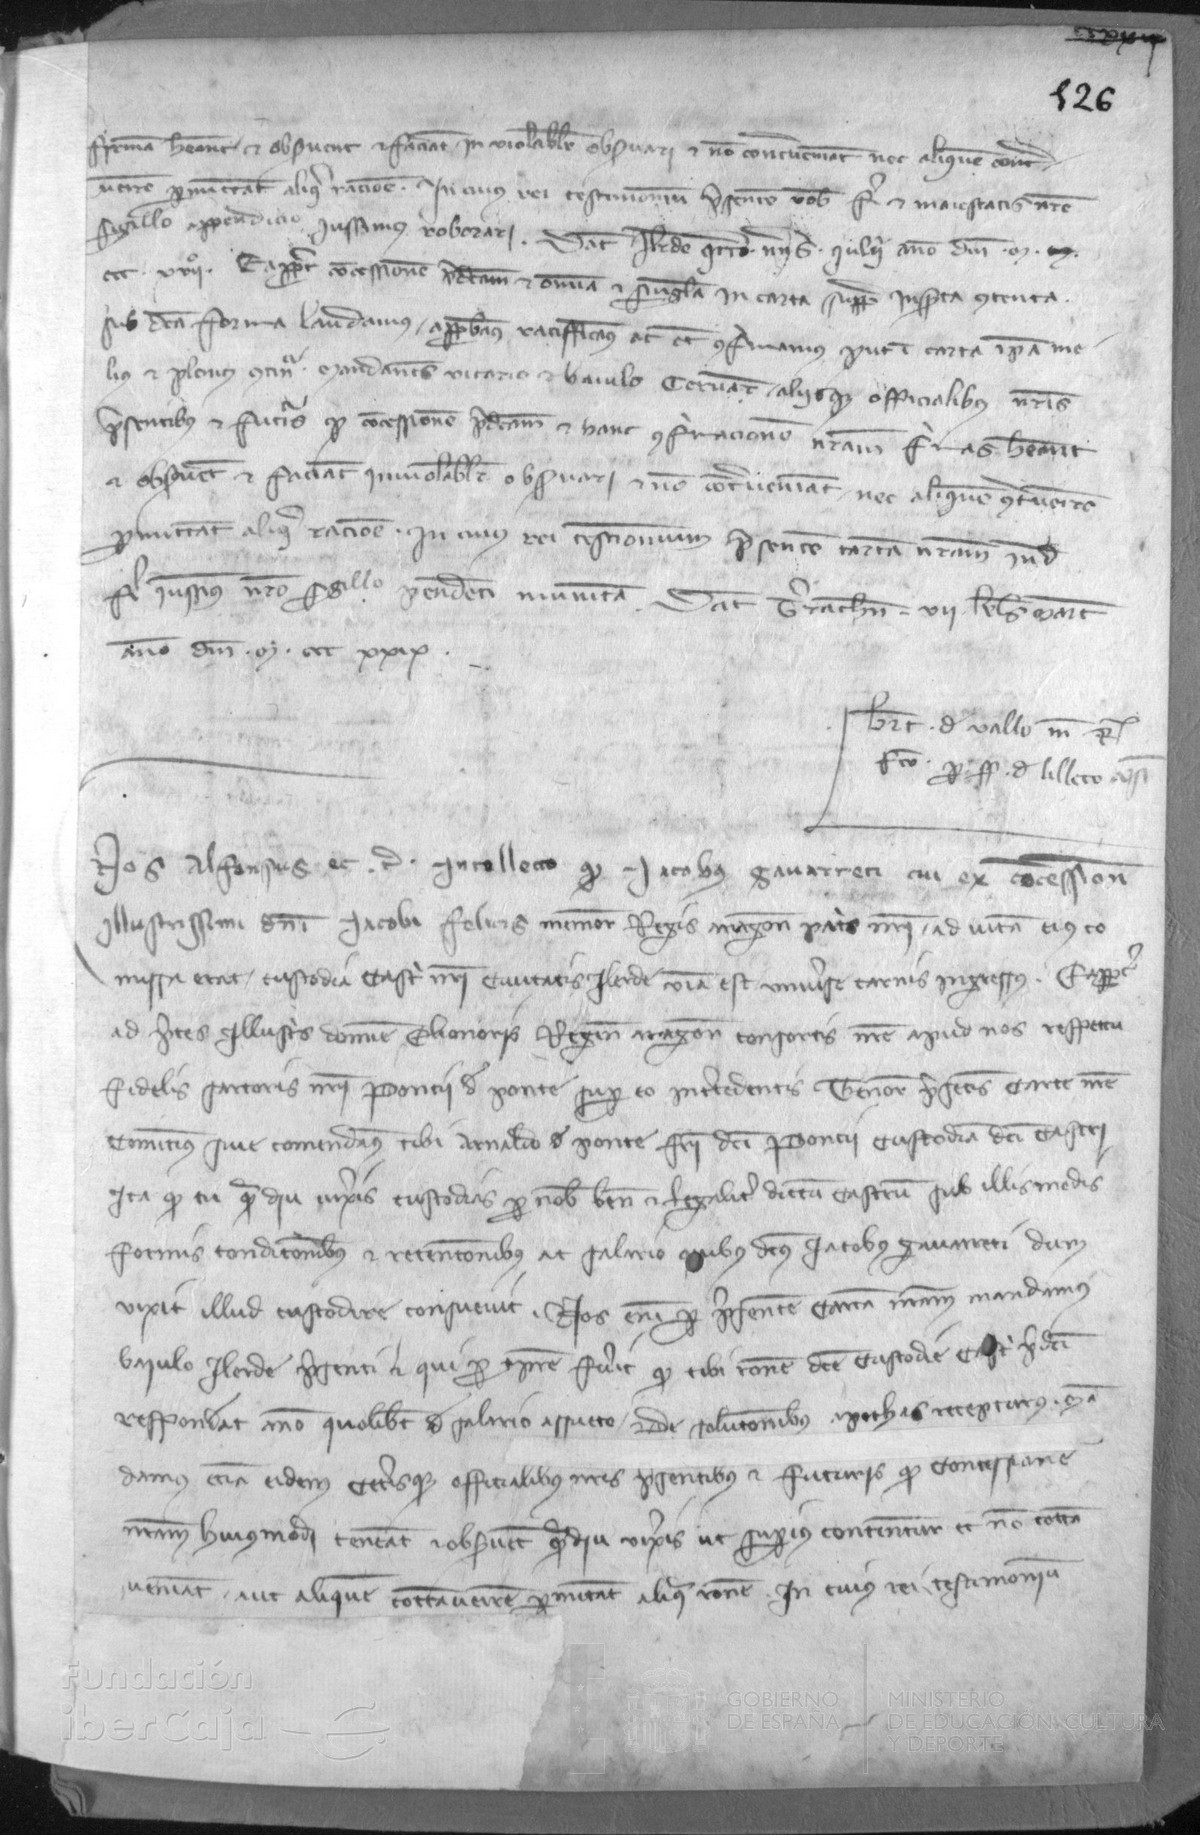 126
firma heant et obseruent et faciant inuiolabiliter obseruari et non contraueniant nec aliquem contra
uenire permittant aliqua racione. In cuius rei testimonium presentem uobis fieri et maiestatis nostre
sigillo appendicio jussimus roborari. Dat Ilerde julii anno dni M
ccc concessionem predictam et omnia et singula in carta supra inserta contenta
sub dicta forma laudamus approbamus ratifficamus ac et confirmamus prout in carta ipsa me
lius et plenius continetur. Mandantes vicario et baiulo Ceruarie aliisque officialibus nostris
presentibus et futuris quod concessionem predictam et hanc confirmacionem nostram firmas heant
et obseruent et faciant inuiolabiliter obseruari et non contraueniant nec aliquem contrauenire
permittant aliqua racione. In cuius rei testimonium presentem cartam nostram inde
fieri jussimus nostro sigillo pendenti munitam. Dat Terrachone vii kls Marcii
anno dni M ccc xxix.
de vallo
de lilleto
Nos Alfonsus et c. Intellecto quod Jacobus Gauarreti cui ex concessione
illustrissimi dni Jacobi felicis memor Regis Aragon patris nri ad uitam eius co
missa erat custodia Castri nri Ciuitatis Ilerde viam est uniuerse carnis ingressus.
ad preces Illustris domine Elionoris Regine Aragon consortis nre apud nos respectu
fidelis sartoris nri Poncii de ponte super eo intercedentis Tenore presentis Carte nre
Comittimus siue comendamus tibi Arnaldo de ponte fratri dicti Poncii Custodiam dicti Castri
Ita quod tu quamdiu uixeris custodias pro nobis bene et legaliter dictum Castrum sub illis modis
formis condicionibus et retencionibus ac salario quibus dictus Jacobus Gauarreti dum
vixit illud custodire consueuit. Nos enim per presentem Cartam nram mandamus
baiulo Ilerde presenti et qui pro tempore fuerit quod tibi racione dicte Custodie Castri predicti
respondeat anno quolibet de salario assueto de solucionibus apochas recepturus. Man
damus eciam eidem Ceterisque officialibus nris presentibus et futuris quod Concessionem
nram huiusmodi teneant et obseruent quamdiu uixeris ut superius continetur et non contra
ueniant aut aliquem contrauenire permitant aliqua racione. In cuius rei testimonium
Fundación
iberCaja
GOBIERNO
DE ESPAÑA
MINISTERIO
DE EDUCACIÓN, CULTURA
Y DEPORTE